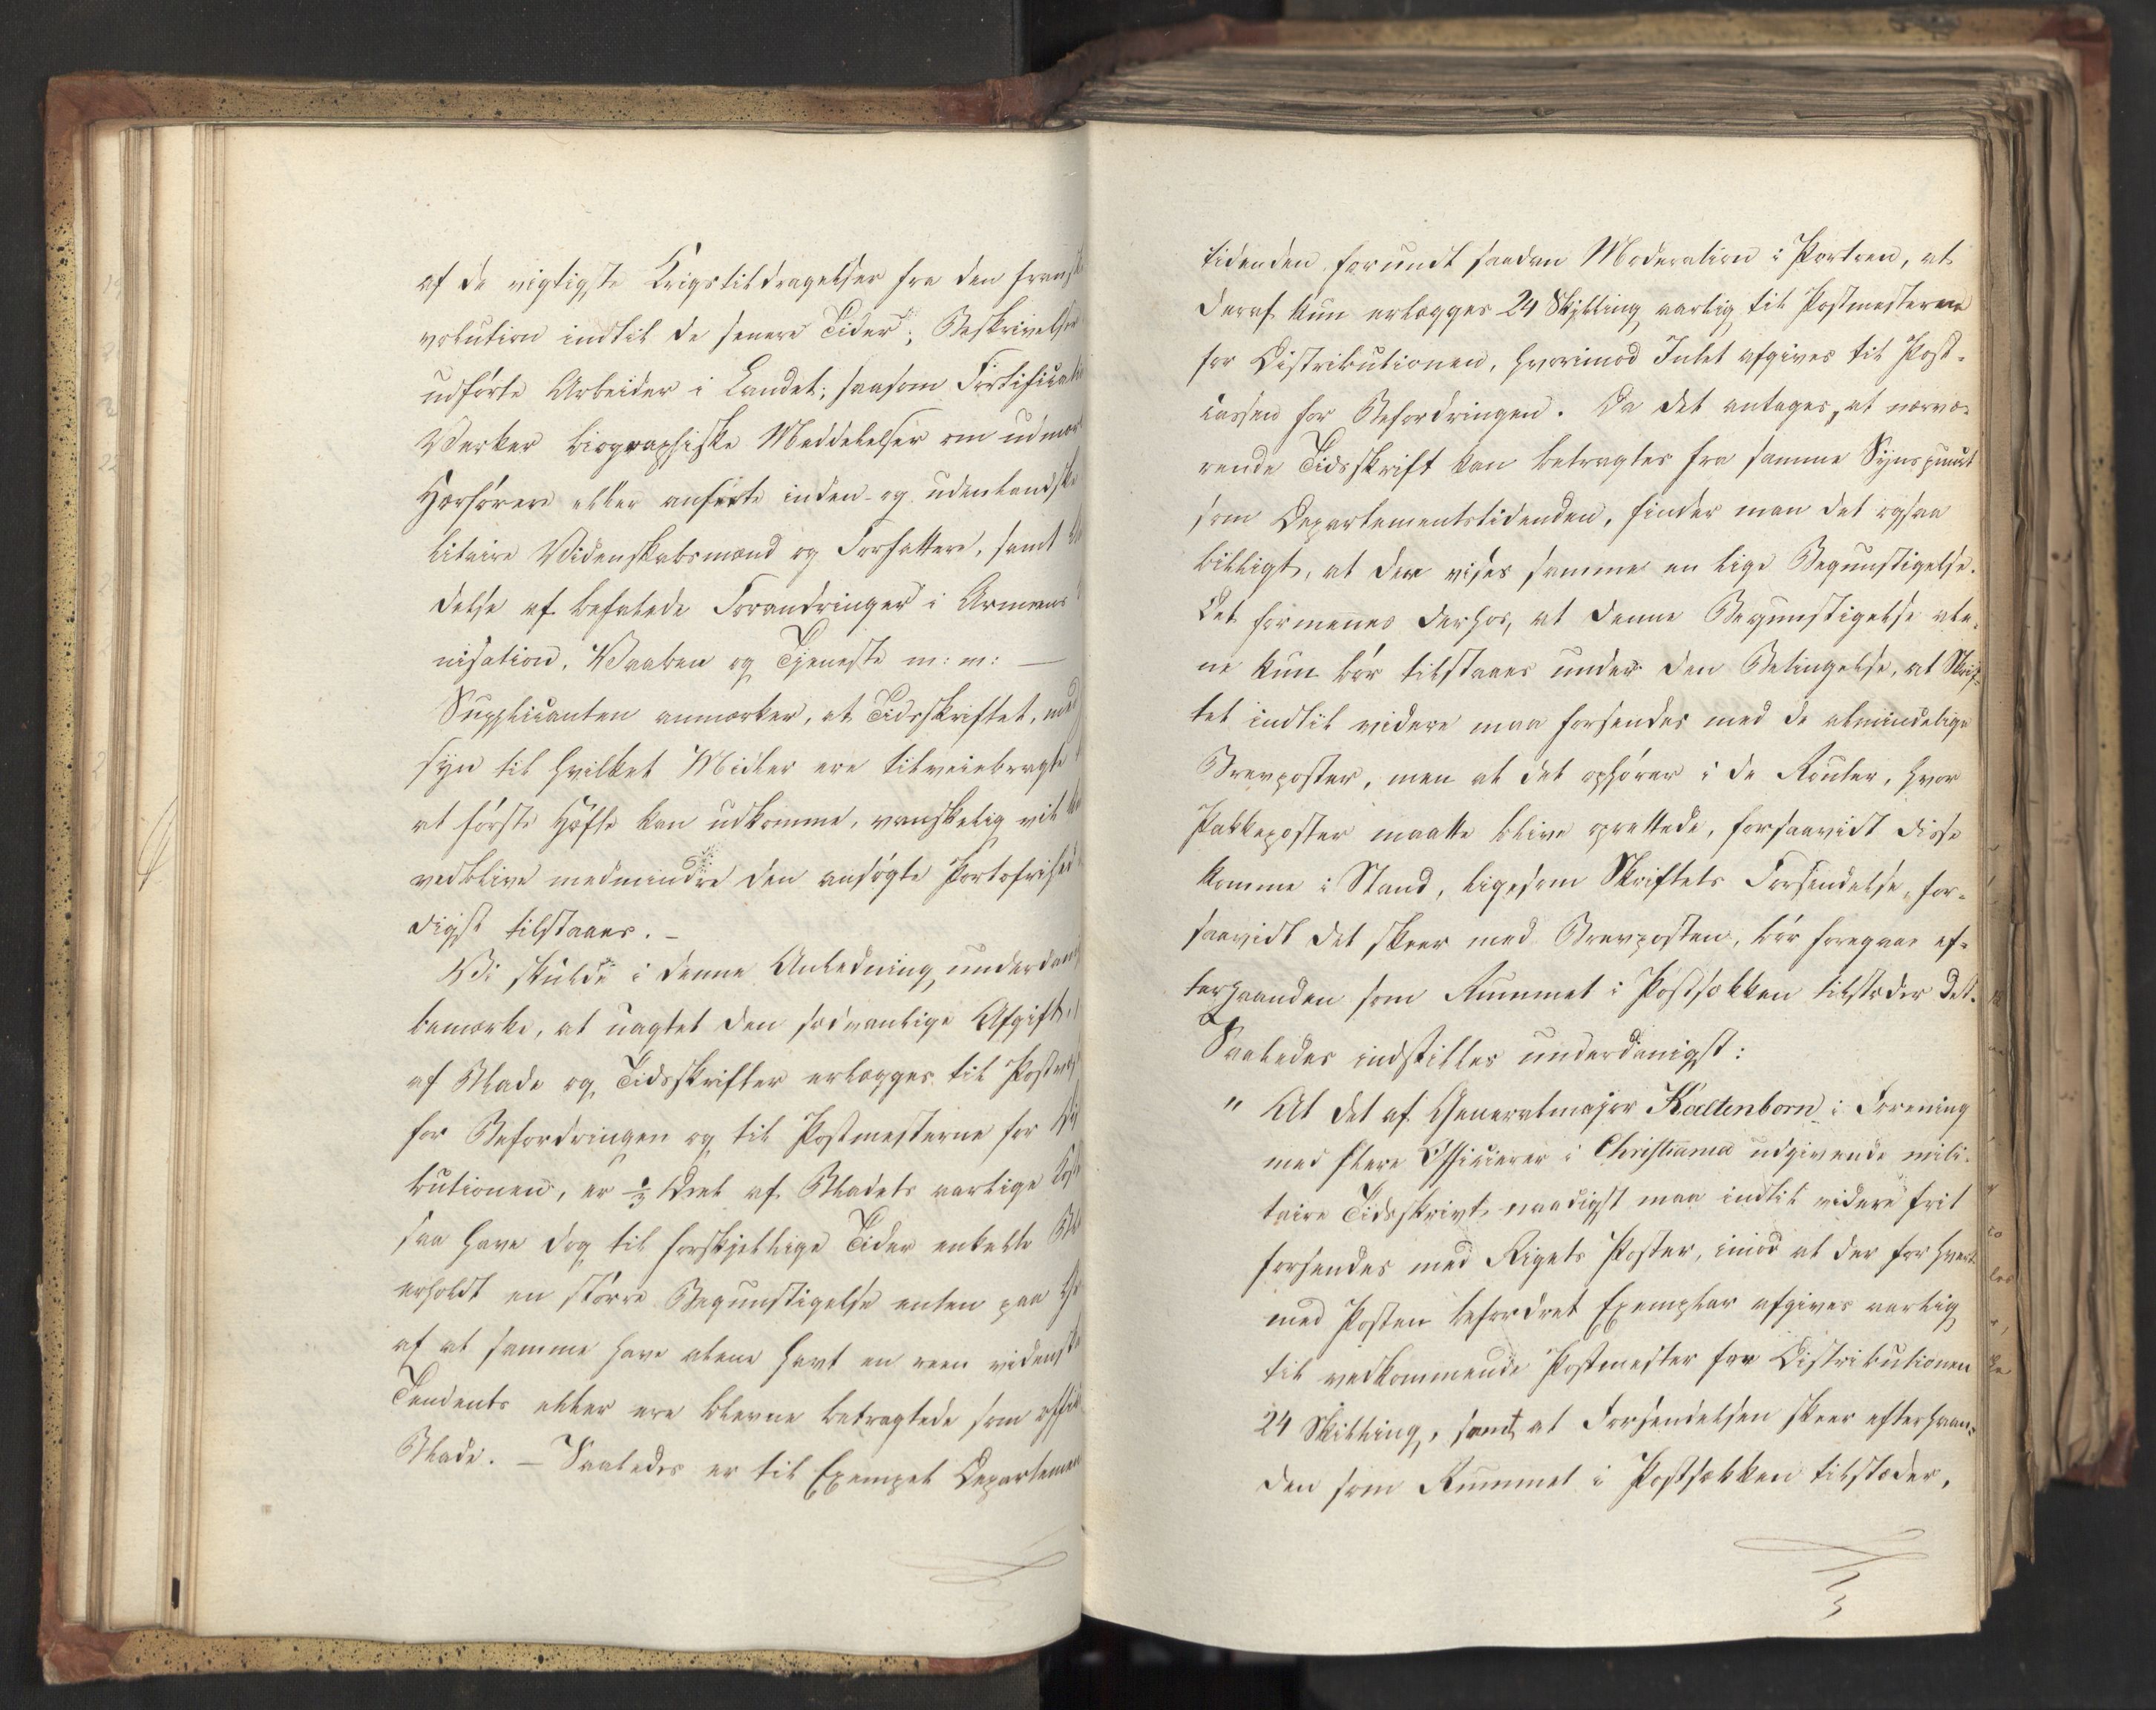 af de vigtigste Krigstildragelser fra den fransk
volution indtil de senere Tider; Beskrivelse
udførte Arbeider i Landet; saasom Fortificati
Værker biographiske Meddelelser om udmær
Hærførere eller anførte inden- og udenlandske
litaire Videnskabsmænd og Forfattere, samt
delse af befalede Forandringer i Armeens
nisation, Vaaben og Tjeneste m: m: —
Supplicanten anmærker, at Tidsskriftet, med
syn til hvilket Midler ere tilveiebragte
at første Hæfte kan udkomme, vanskelig vil
vedblive medmindre den ansøgte Portofrihed
digst tilstaaes. –
Vi skulde i denne Anledning underdani
bemærke, at uagtet den sædvanlige Afgift,
af Blade og Tidsskrifter erlægges til Postvæs
for Befordringen og til Postmesterne for Di
butionen, er ⅓ Deel af Bladets aarlige Kost
saa have dog til forskjellige Tider enkelte Bl
erholdt en større Begunstigelse enten paa Gr
af at samme have alene havt en reen videnska
Tendents eller ere blevne betragtede som offici
Blade. – Saaledes er til Exempel Departemen
tidenden forundt saadan Moderation i Portoen, at
deraf kun erlægges 24 Skilling aarlig til Postmesterne
for Distributionen, hvorimod Intet afgives til Post-
cassen for Befordringen. Da det antages, at nærvæ-
rende Tidsskrift kan betragtes fra samme Synspunct
som Departementstidenden, finder man det ogsaa
billigt, at der vises samme en lige Begunstigelse.
Det formenes derhos, at denne Begunstigelse ale-
ne kun bør tilstaaes under den Betingelse, at Skrif-
tet indtil videre maa forsendes med de almindelige
Brevposter, men at det ophører i de Router, hvor
Pakkeposter maatte blive oprettede, forsaavidt disse
komme i Stand, ligesom Skriftets Forsendelse, for-
saavidt det skeer med Brevposten, bør foregaae ef-
terhaanden som Rummet i Postsækken tilsteder det.
Saaledes indstilles underdanigst:
" At det af Generalmajor Kaltenborn i Forening
med flere Officierer i Christiania udgivende mili-
taire Tidsskrivt naadigst maa indtil videre frit
forsendes med Rigets Poster, imod at der for hvert
med Posten befordret Exemplar afgives aarlig
til vedkommende Postmester for Distributionen
24 Skilling, samt at Forsendelsen skeer efterhaan-
den som Rummet i Postsækken tilstæder,